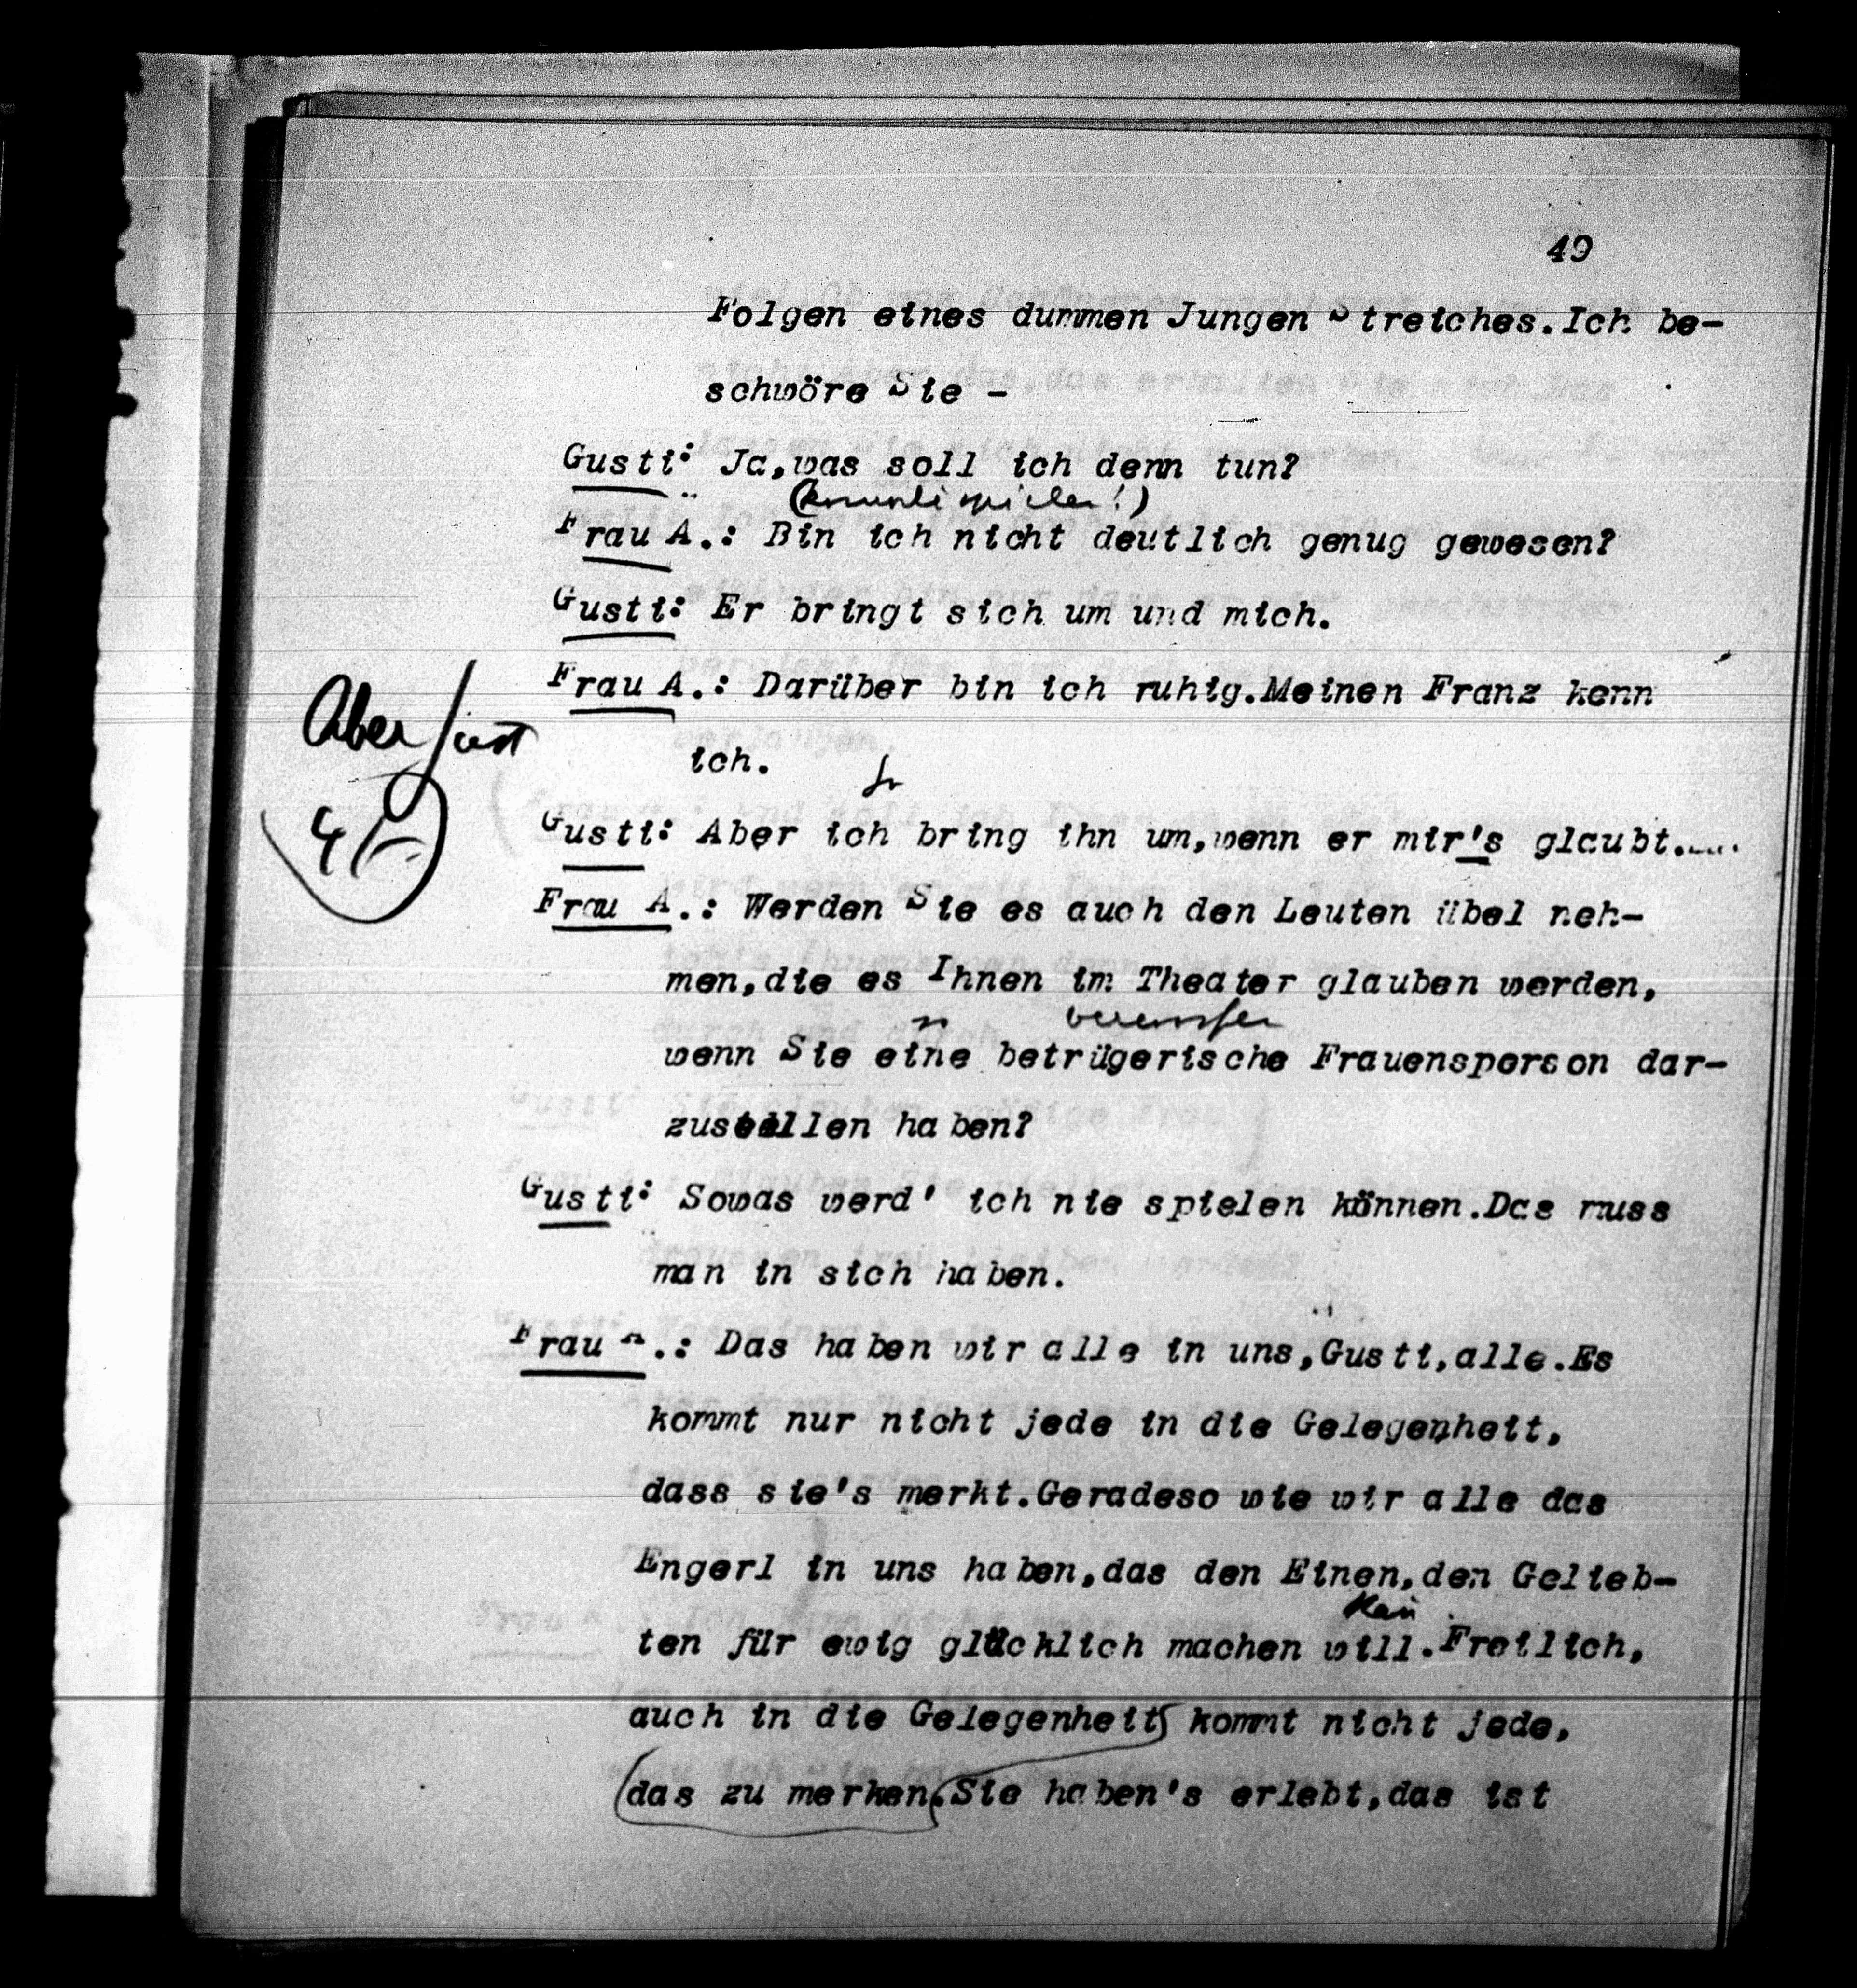 49
Folgen eines dummen Jungen Streiches.Ich be-
schwöre Sie -
Gusti: Ja,was soll ich denn tun?
Frau A.: Bin ich nicht deutlich genug gewesen?
Gusti: Er bringt sich um und mich.
Frau A.: Darüber bin ich ruhig.Meinen Franz kenn
Aber
ich.
Gusti: Aber ich bring ihn um,wenn er mir's glaubt....
Frau A.: Werden Sie es auch den Leuten übel neh-
men,die es Ihnen im Theater glauben werden,
wenn Sie eine betrügerische Frauensperson dar-
zustellen haben?
Gusti: Sowas werd' ich nie spielen können.Das muss
man in sich haben.
Frau A.: Das haben wir alle in uns,Gusti,alle.Es
kommt nur nicht jede in die Gelegenheit,
dass sie's merkt.Geradeso wie wir alle das
Engerl in uns haben,das den Einen,den Gelieb-
ten für ewig glücklich machen will.Freilich,
auch in die Gelegenheit kommt nicht jede,
das zu merken.Sie haben's erlebt,das ist